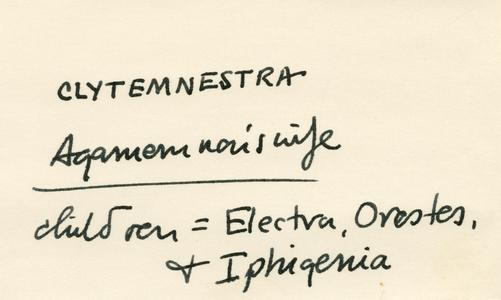 CLYTEMNESTRA
Agamemnon's wife
children = Electra, Orestes,
& Iphigenia